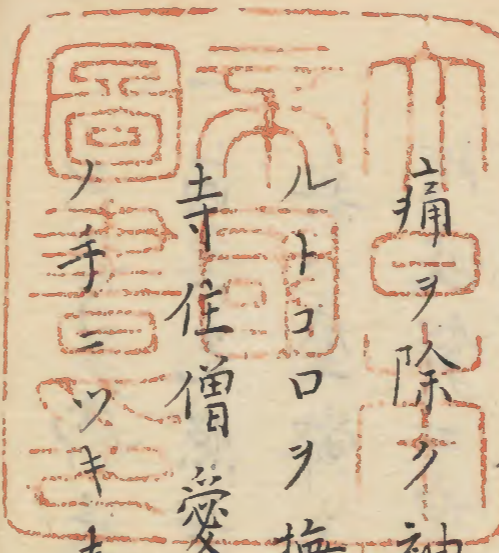 痛ヲ除ク神
ルトコロヲ撫
寺住僧愛
ノ手ニツキ